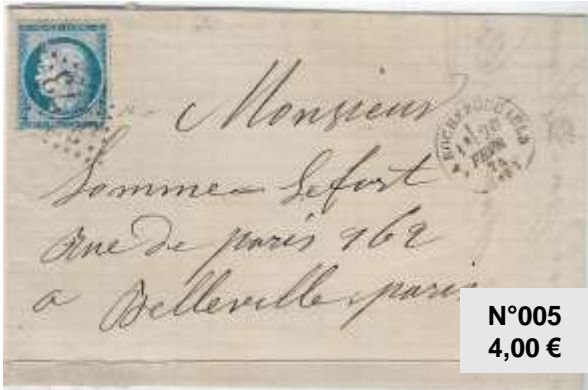 Monsieur
Somme Lefort
rue de paris 162
a Belleville paris
N°005
4,00 €